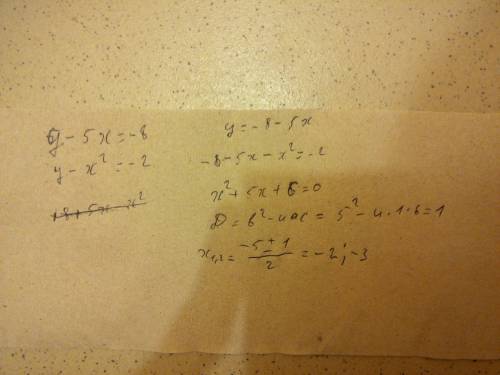 y - 5x = -8
y - x² = -2
-8+5x-x²
y = -8 - 5x
-8 - 5x - x² = -2
x² + 5x + 6 = 0
D = b² - 4ac = 5² - 4·1·6 = 1
x₁,₂ = (-5 ± 1)/2 = -2; -3